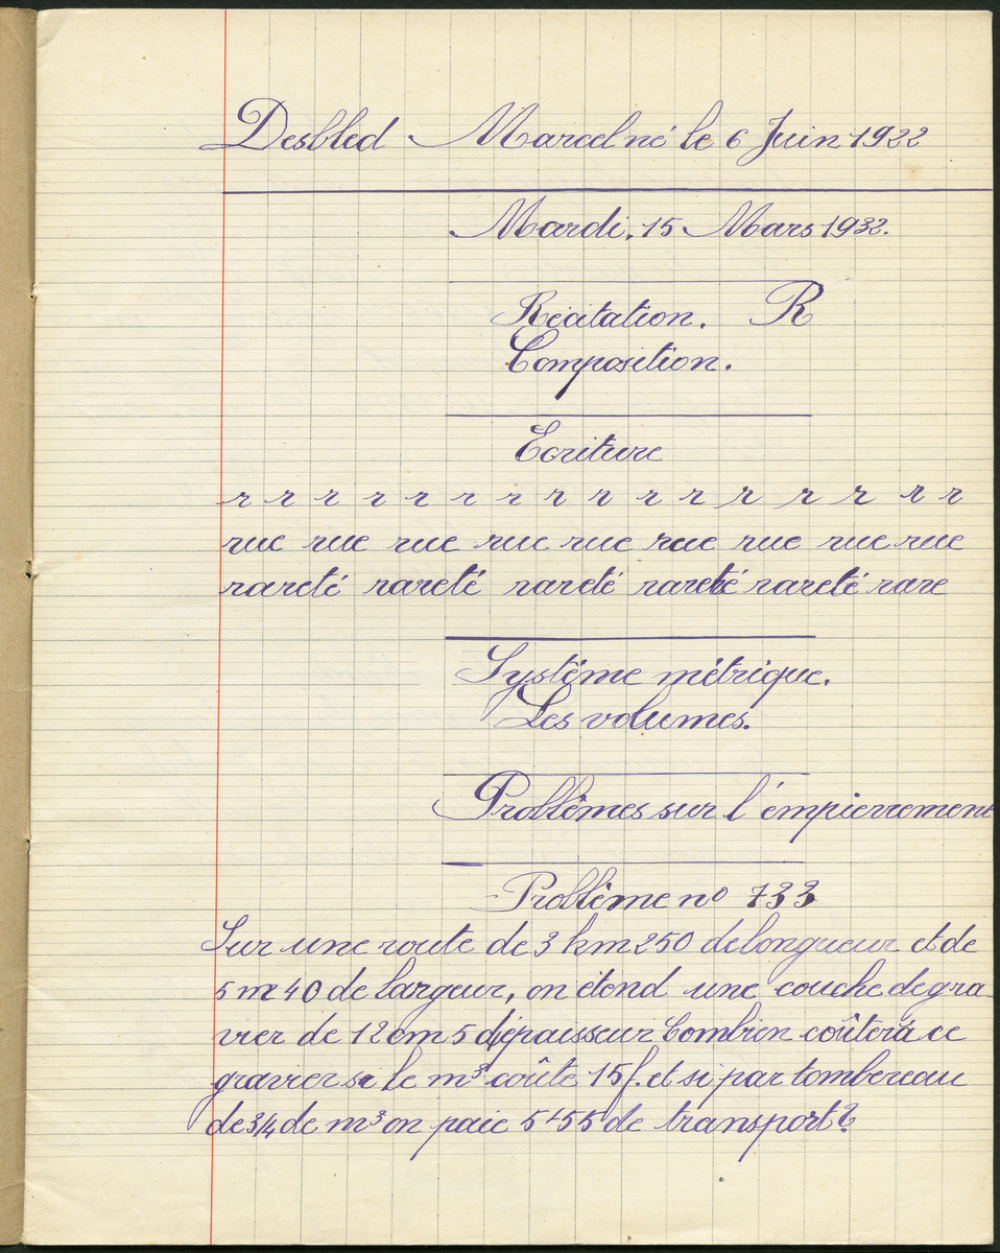 Desbled Marcel né le 6 Juin 1922
Mardi, 15 Mars 1932.
Récitation. R
Composition.
Ecriture
r r r r r r r r r r r r r r r r r
rue rue rue rue rue rue rue rue rue
rareté rareté rareté rareté rareté rare
Système métrique.
Les volumes.
Problèmes sur l'émpierrement
Problème no 733
Sur une route de 3 km 250 de longueur et de
5 m 40 de largeur, on étend une couche de gra
vier de 12 cm 5 d'épaisseur Combien coûtera ce
gravier si le m³ coûte 15f. et si par tombereau
de 3/4 de m³ on paie 5f55 de transport?